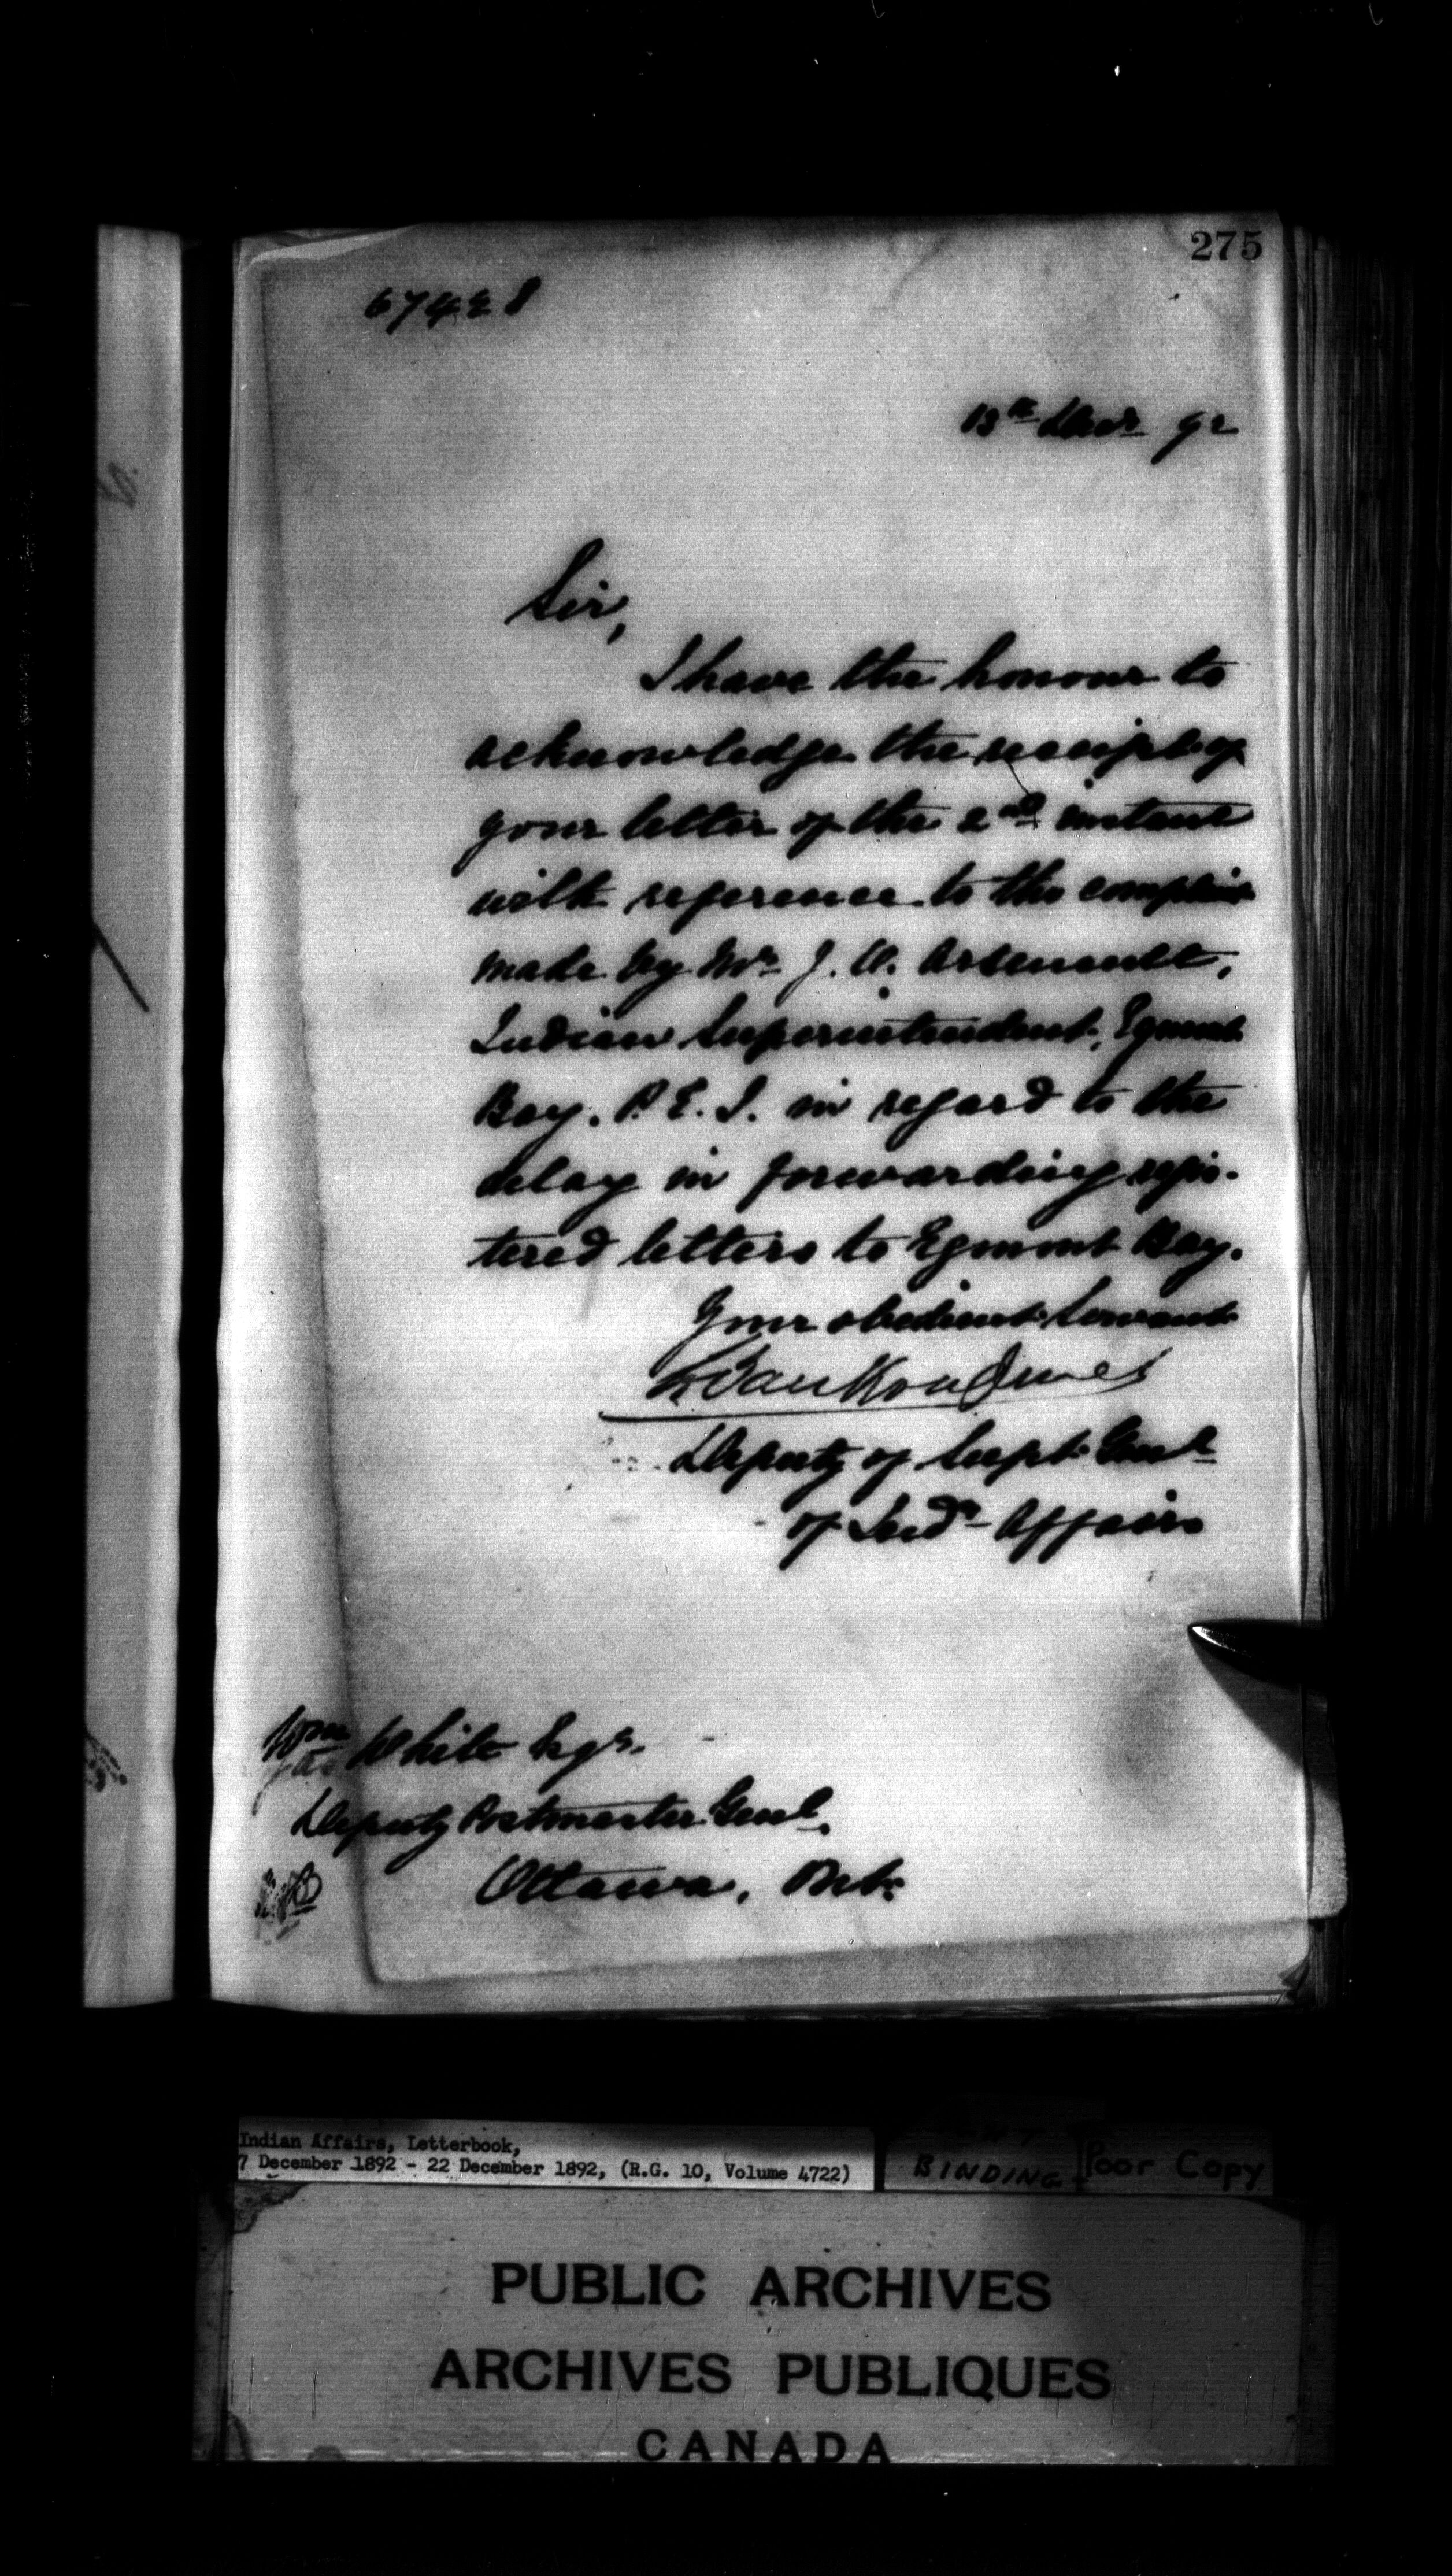 275
67428
13th Decr 92
Sir,
I have the honour to
acknowledge the receipt of
your letter of the 2nd instant
with reference to the complaint
made by Mr J. O. Arsenault,
Indian Superintendent, Egmont
Bay. P. E. I. in regard to the
delay in forwarding regis-
tered letters to Egmont Bay.
Your obedient Servant
L Vankoughnet
Deputy of Supt. Genl
of Indn Affairs
Wm White Esqr.
Deputy Postmaster Genl.
Ottawa, Ont.
Indian Affairs, Letterbook,
7 December 1892 - 22 December 1892, (R.G. 10, Volume 4722)
BINDING
Poor Copy
PUBLIC ARCHIVES
ARCHIVES PUBLIQUES
CANADA